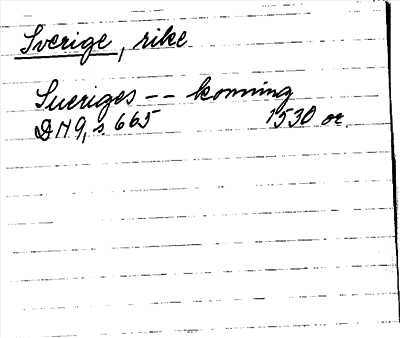 Sverige, rike
Sueriges -- konning
DN 9, s. 665 1530 or.